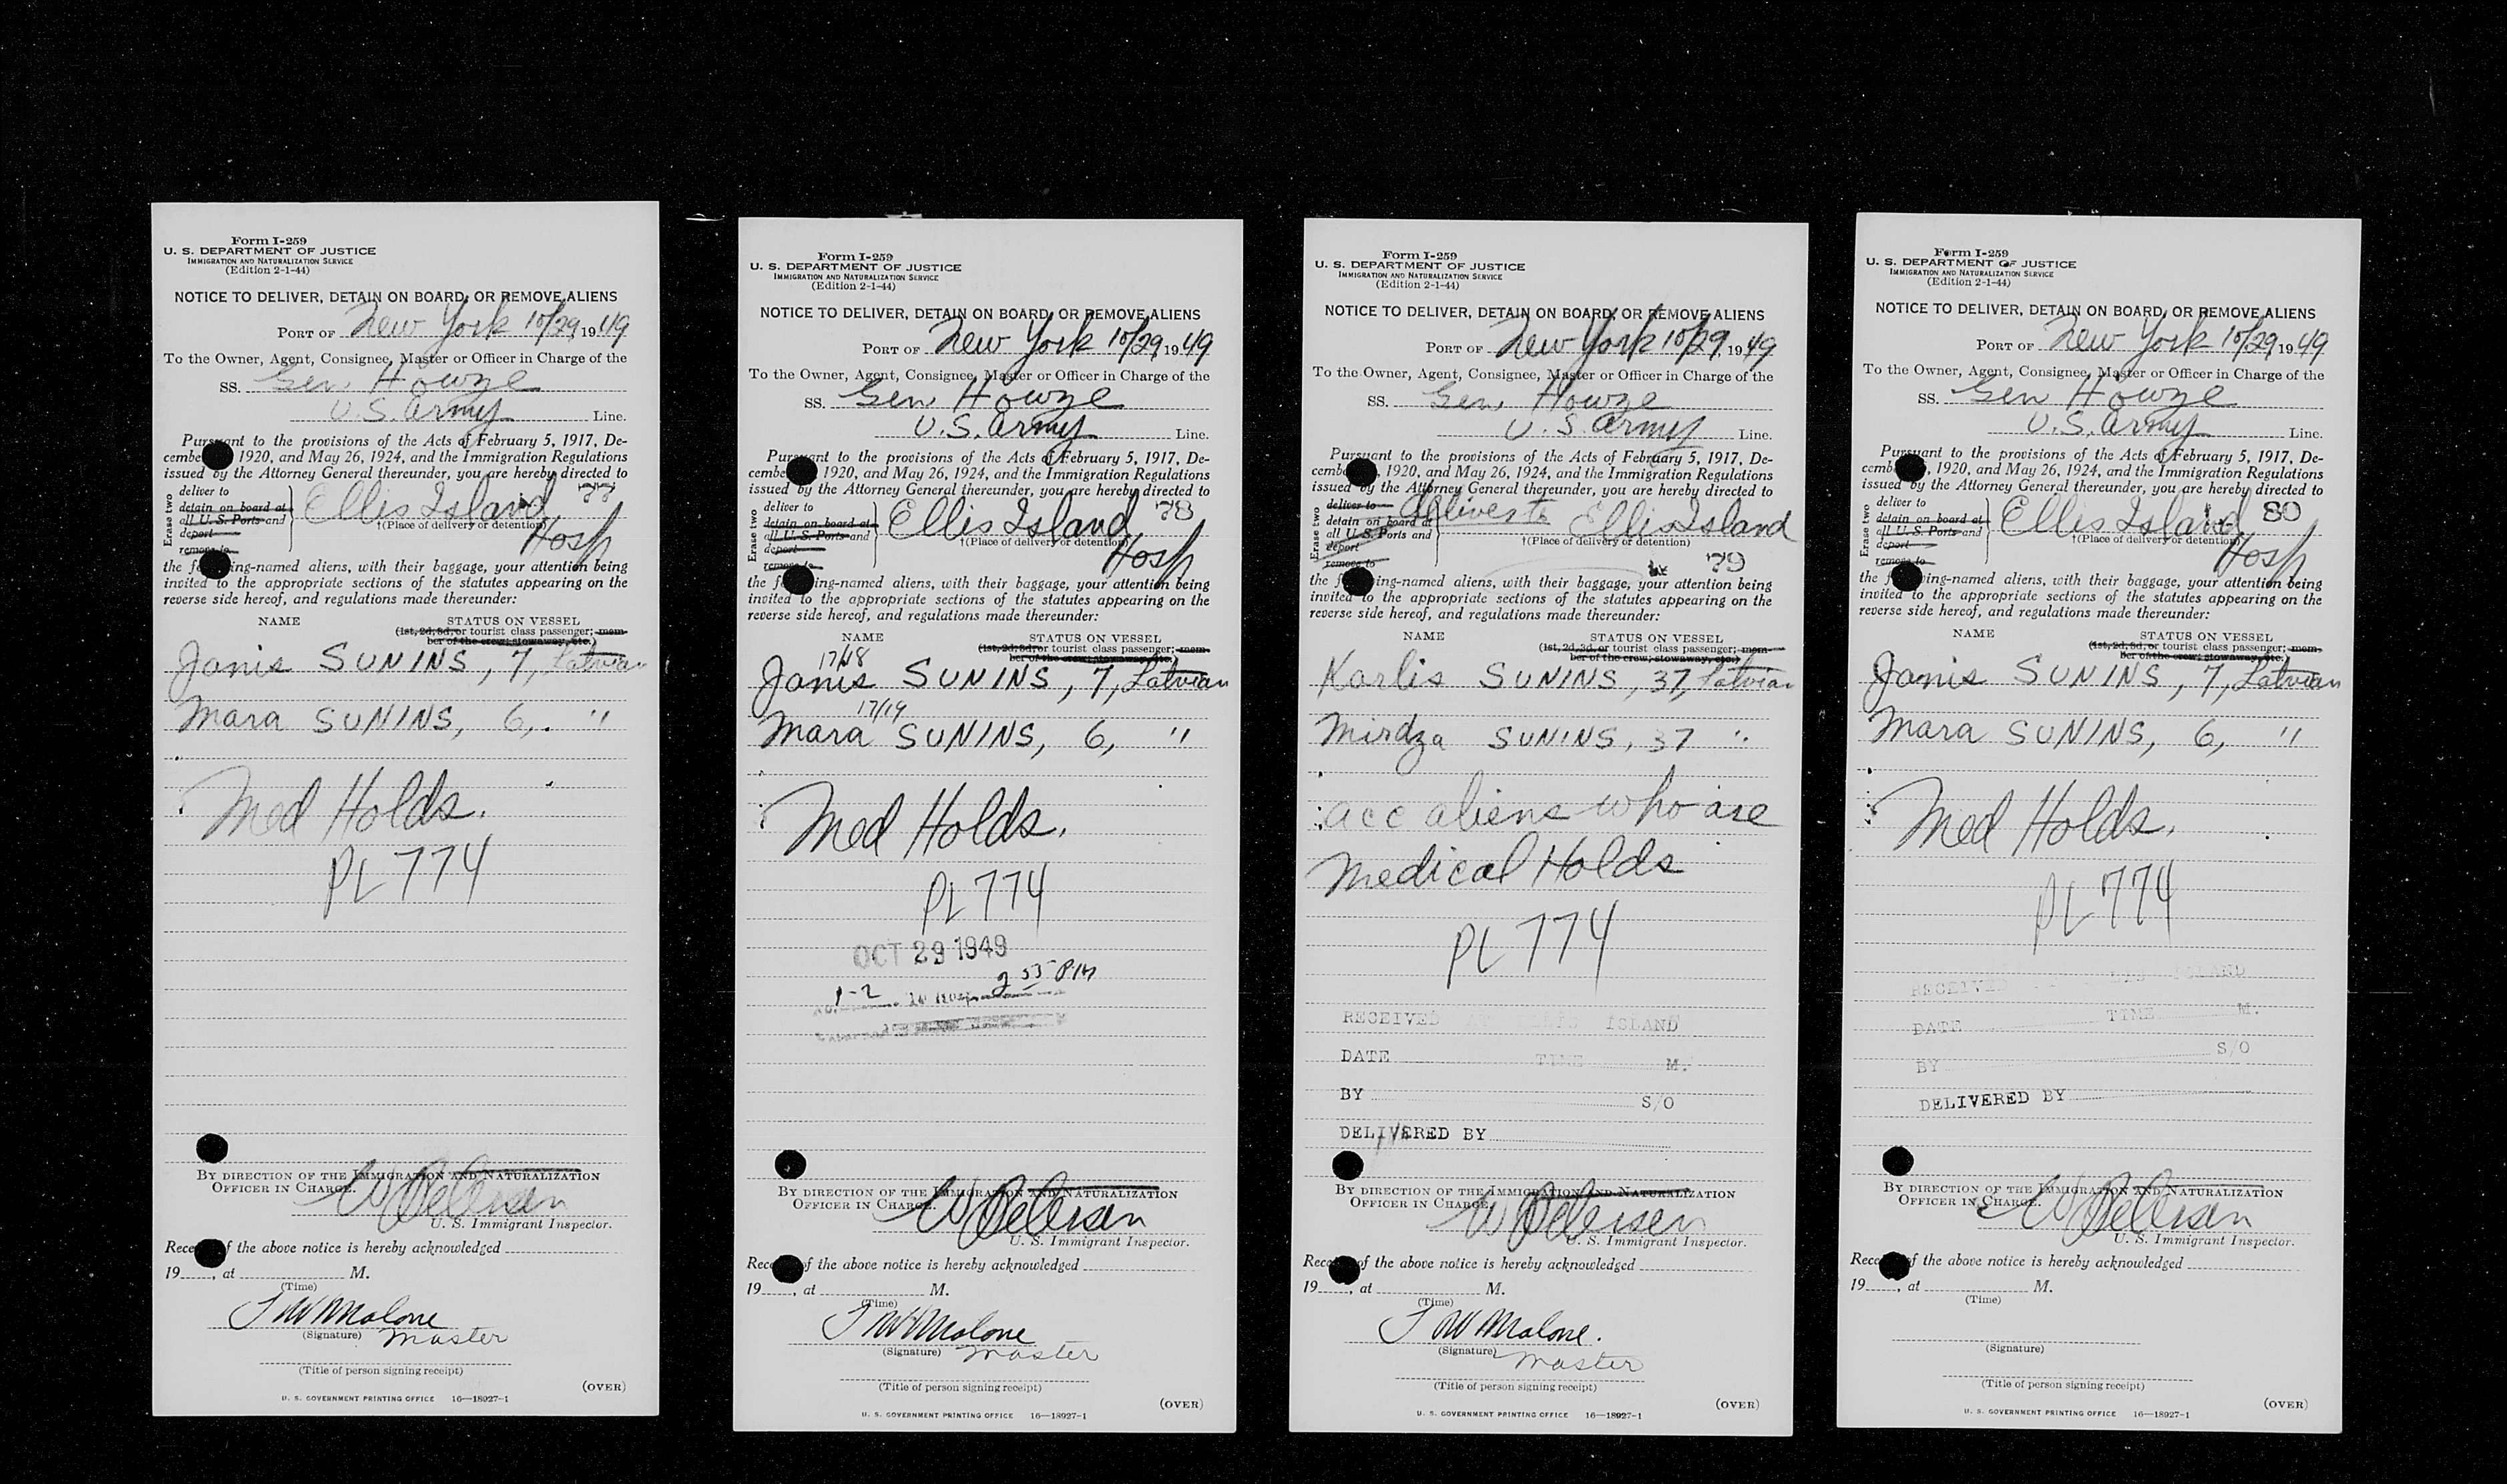 Form I-259
U. S. DEPARTMENT OF JUSTICE
IMMIGRATION AND NATURALIZATION SERVICE
(Edition 2-1-44)
NOTICE TO DELIVER, DETAIN ON BOARD, OR REMOVE ALIENS
PORT OF New York 10/29, 1949
To the Owner, Agent, Consignee, Master or Officer in Charge of the
SS. Gen Howze
U.S. Army Line.
Pursuant to the provisions of the Acts of February 5, 1917, De-
cembe 1920, and May 26, 1924, and the Immigration Regulations
issued by the Attorney General thereunder, you are hereby directed to
Erase two
deliver to
detain on board at
all U. S. Ports and
deport
remove to
Ellis Island 77
†(Place of delivery or detention)
Hosp
the f ing-named aliens, with their baggage, your attention being
invited to the appropriate sections of the statutes appearing on the
reverse side hereof, and regulations made thereunder:
NAME STATUS ON VESSEL
(1st, 2d, 3d, or tourist class passenger; mem-
ber of the crew; stowaway, etc.)
Janis SUNINS, 7, Latvian
Mara SUNINS, 6, "
Med Holds.
PL 774
BY DIRECTION OF THE IMMIGRATION AND NATURALIZATION
OFFICER IN CHARGE.
W Petersen
U. S. Immigrant Inspector.
Rece f the above notice is hereby acknowledged
19 , at M.
(Time)
J W Malone
(Signature) Master
(Title of person signing receipt)
(OVER)
U. S. GOVERNMENT PRINTING OFFICE 16—18927-1
Form I-259
U. S. DEPARTMENT OF JUSTICE
IMMIGRATION AND NATURALIZATION SERVICE
(Edition 2-1-44)
NOTICE TO DELIVER, DETAIN ON BOARD, OR REMOVE ALIENS
PORT OF New York 10/29 1949
To the Owner, Agent, Consignee, Master or Officer in Charge of the
SS. Gen Howze
U.S. Army Line.
Pursuant to the provisions of the Acts of February 5, 1917, De-
cembe 1920, and May 26, 1924, and the Immigration Regulations
issued by the Attorney General thereunder, you are hereby directed to
Erase two
deliver to
detain on board at
all U. S. Ports and
deport
remove to
Ellis Island 78
†(Place of delivery or detention)
Hosp
the f ing-named aliens, with their baggage, your attention being
invited to the appropriate sections of the statutes appearing on the
reverse side hereof, and regulations made thereunder:
NAME STATUS ON VESSEL
(1st, 2d, 3d, or tourist class passenger; mem-
ber of the crew; stowaway, etc.)
17/18
Janis SUNINS, 7, Latvian
17/19
Mara SUNINS, 6, "
Med Holds.
PL 774
OCT 29 1949
1-2 2 55 PM
BY DIRECTION OF THE IMMIGRATION AND NATURALIZATION
OFFICER IN CHARGE.
W Petersen
U. S. Immigrant Inspector.
Rece f the above notice is hereby acknowledged
19 , at M.
(Time)
J W Malone
(Signature) Master
(Title of person signing receipt)
(OVER)
U. S. GOVERNMENT PRINTING OFFICE 16—18927-1
Form I-259
U. S. DEPARTMENT OF JUSTICE
IMMIGRATION AND NATURALIZATION SERVICE
(Edition 2-1-44)
NOTICE TO DELIVER, DETAIN ON BOARD, OR REMOVE ALIENS
PORT OF New York 10/29, 1949
To the Owner, Agent, Consignee, Master or Officer in Charge of the
SS. Gen. Howze
U.S. Army Line.
Pursuant to the provisions of the Acts of February 5, 1917, De-
cemb , 1920, and May 26, 1924, and the Immigration Regulations
issued by the Attorney General thereunder, you are hereby directed to
Erase two
deliver to
detain on board at
all U. S. Ports and
deport
remove to
deliver to Ellis Island
†(Place of delivery or detention)
79
the f ing-named aliens, with their baggage, your attention being
invited to the appropriate sections of the statutes appearing on the
reverse side hereof, and regulations made thereunder:
NAME STATUS ON VESSEL
(1st, 2d, 3d, or tourist class passenger; mem-
ber of the crew; stowaway, etc.)
Karlis SUNINS, 37, Latvian
Mirdza SUNINS, 37 "
acc aliens who are
Medical Holds
PL 774
RECEIVED ISLAND
DATE TIME M.
BY S/O
DELIVERED BY
BY DIRECTION OF THE IMMIGRATION AND NATURALIZATION
OFFICER IN CHARGE.
W Petersen
U. S. Immigrant Inspector.
Rece of the above notice is hereby acknowledged
19 , at M.
(Time)
J W Malone.
(Signature) Master
(Title of person signing receipt)
(OVER)
U. S. GOVERNMENT PRINTING OFFICE 16—18927-1
Form I-259
U. S. DEPARTMENT OF JUSTICE
IMMIGRATION AND NATURALIZATION SERVICE
(Edition 2-1-44)
NOTICE TO DELIVER, DETAIN ON BOARD, OR REMOVE ALIENS
PORT OF New York 10/29 1949
To the Owner, Agent, Consignee, Master or Officer in Charge of the
SS. Gen Howze
U.S. Army Line.
Pursuant to the provisions of the Acts of February 5, 1917, De-
cemb , 1920, and May 26, 1924, and the Immigration Regulations
issued by the Attorney General thereunder, you are hereby directed to
Erase two
deliver to
detain on board at
all U. S. Ports and
deport
remove to
Ellis Island 80
†(Place of delivery or detention)
Hosp
the f wing-named aliens, with their baggage, your attention being
invited to the appropriate sections of the statutes appearing on the
reverse side hereof, and regulations made thereunder:
NAME STATUS ON VESSEL
(1st, 2d, 3d, or tourist class passenger; mem-
ber of the crew; stowaway, etc.)
Janis SUNINS, 7, Latvian
Mara SUNINS, 6, "
Med Holds.
PL 774
RECEIVED ISLAND
DATE TIME M.
BY S/O
DELIVERED BY
BY DIRECTION OF THE IMMIGRATION AND NATURALIZATION
OFFICER IN CHARGE.
W Petersen
U. S. Immigrant Inspector.
Rece f the above notice is hereby acknowledged
19 , at M.
(Time)
(Signature)
(Title of person signing receipt)
(OVER)
U. S. GOVERNMENT PRINTING OFFICE 16—18927-1